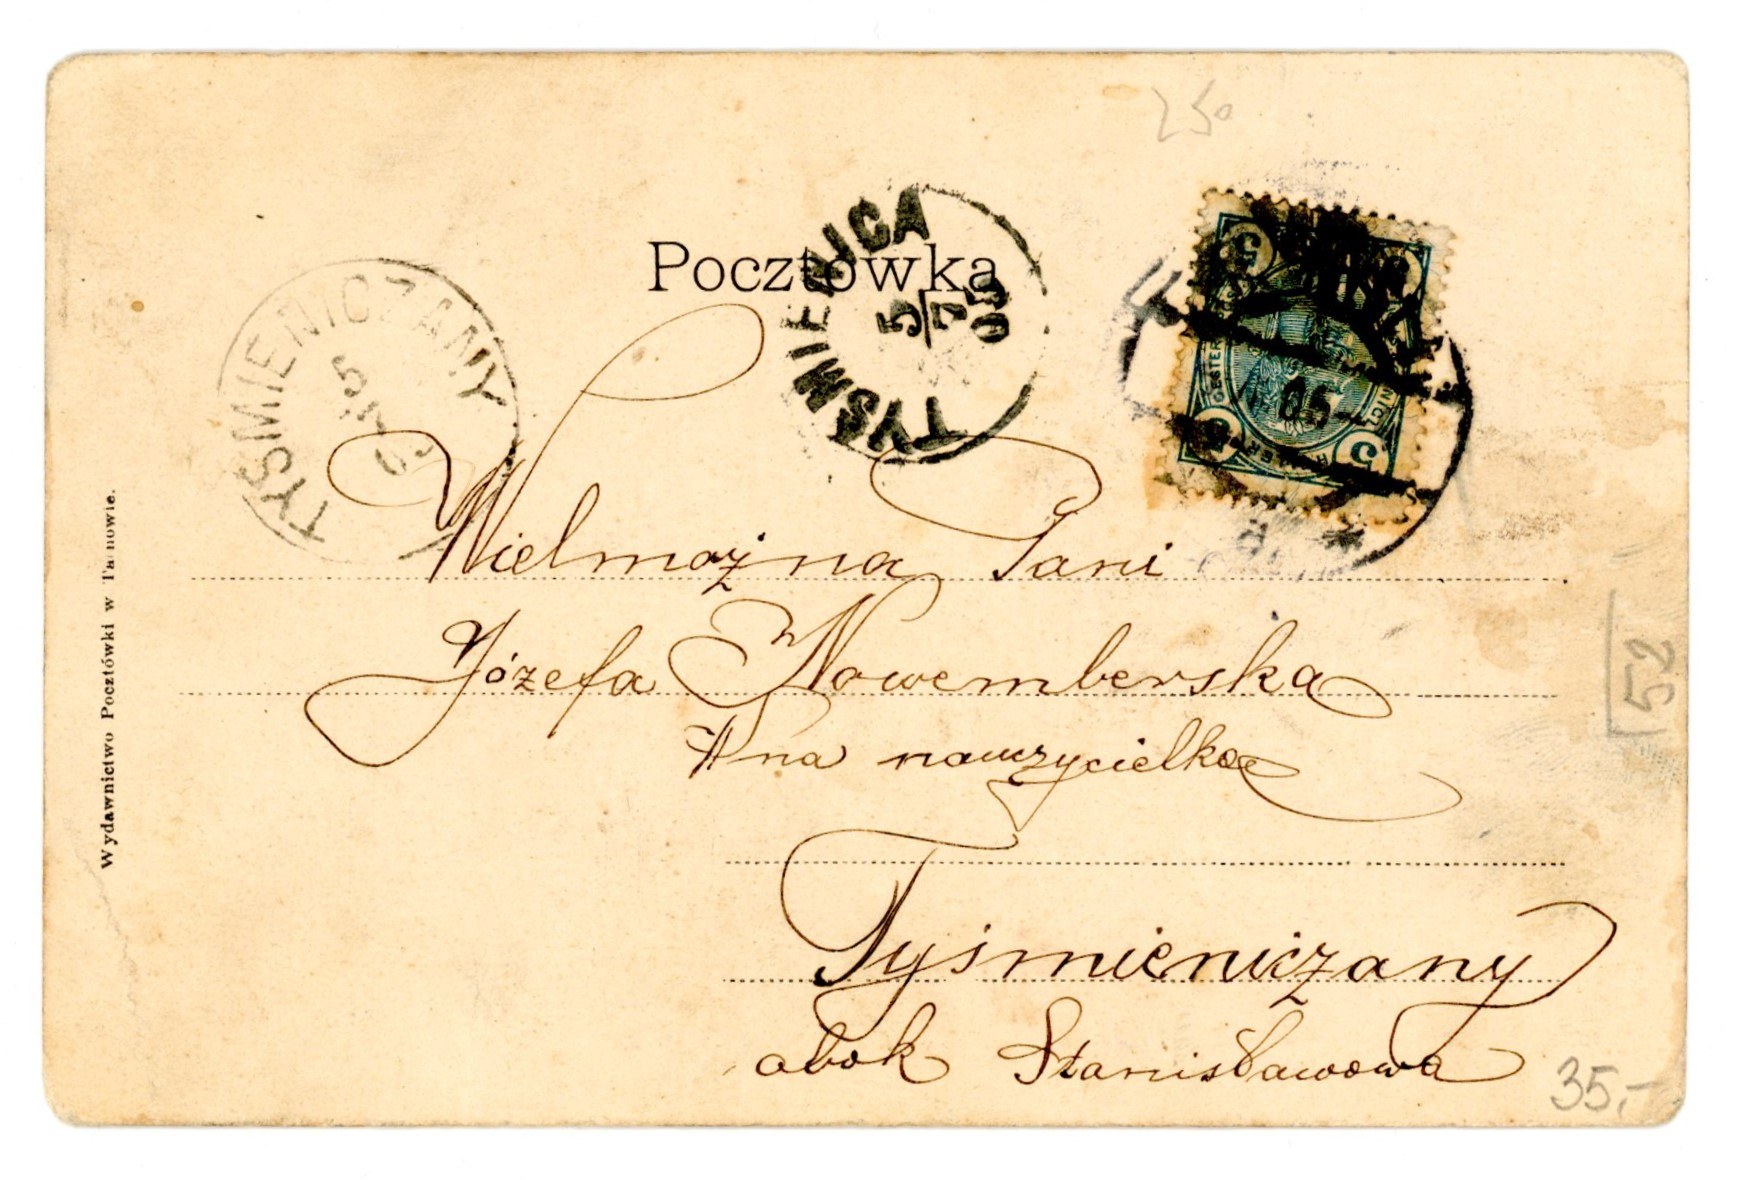 250
Pocztówka
TYŚMIENICA
5/7
05
TYŚMIENICZANY
5
5
5
05
Wielmożna Pani
Józefa Nowemberska
na nauczycielka
Tyśmieniczany
obok Stanisławowa
Wydawnictwo Pocztówki w Tarnowie.
52
35,-